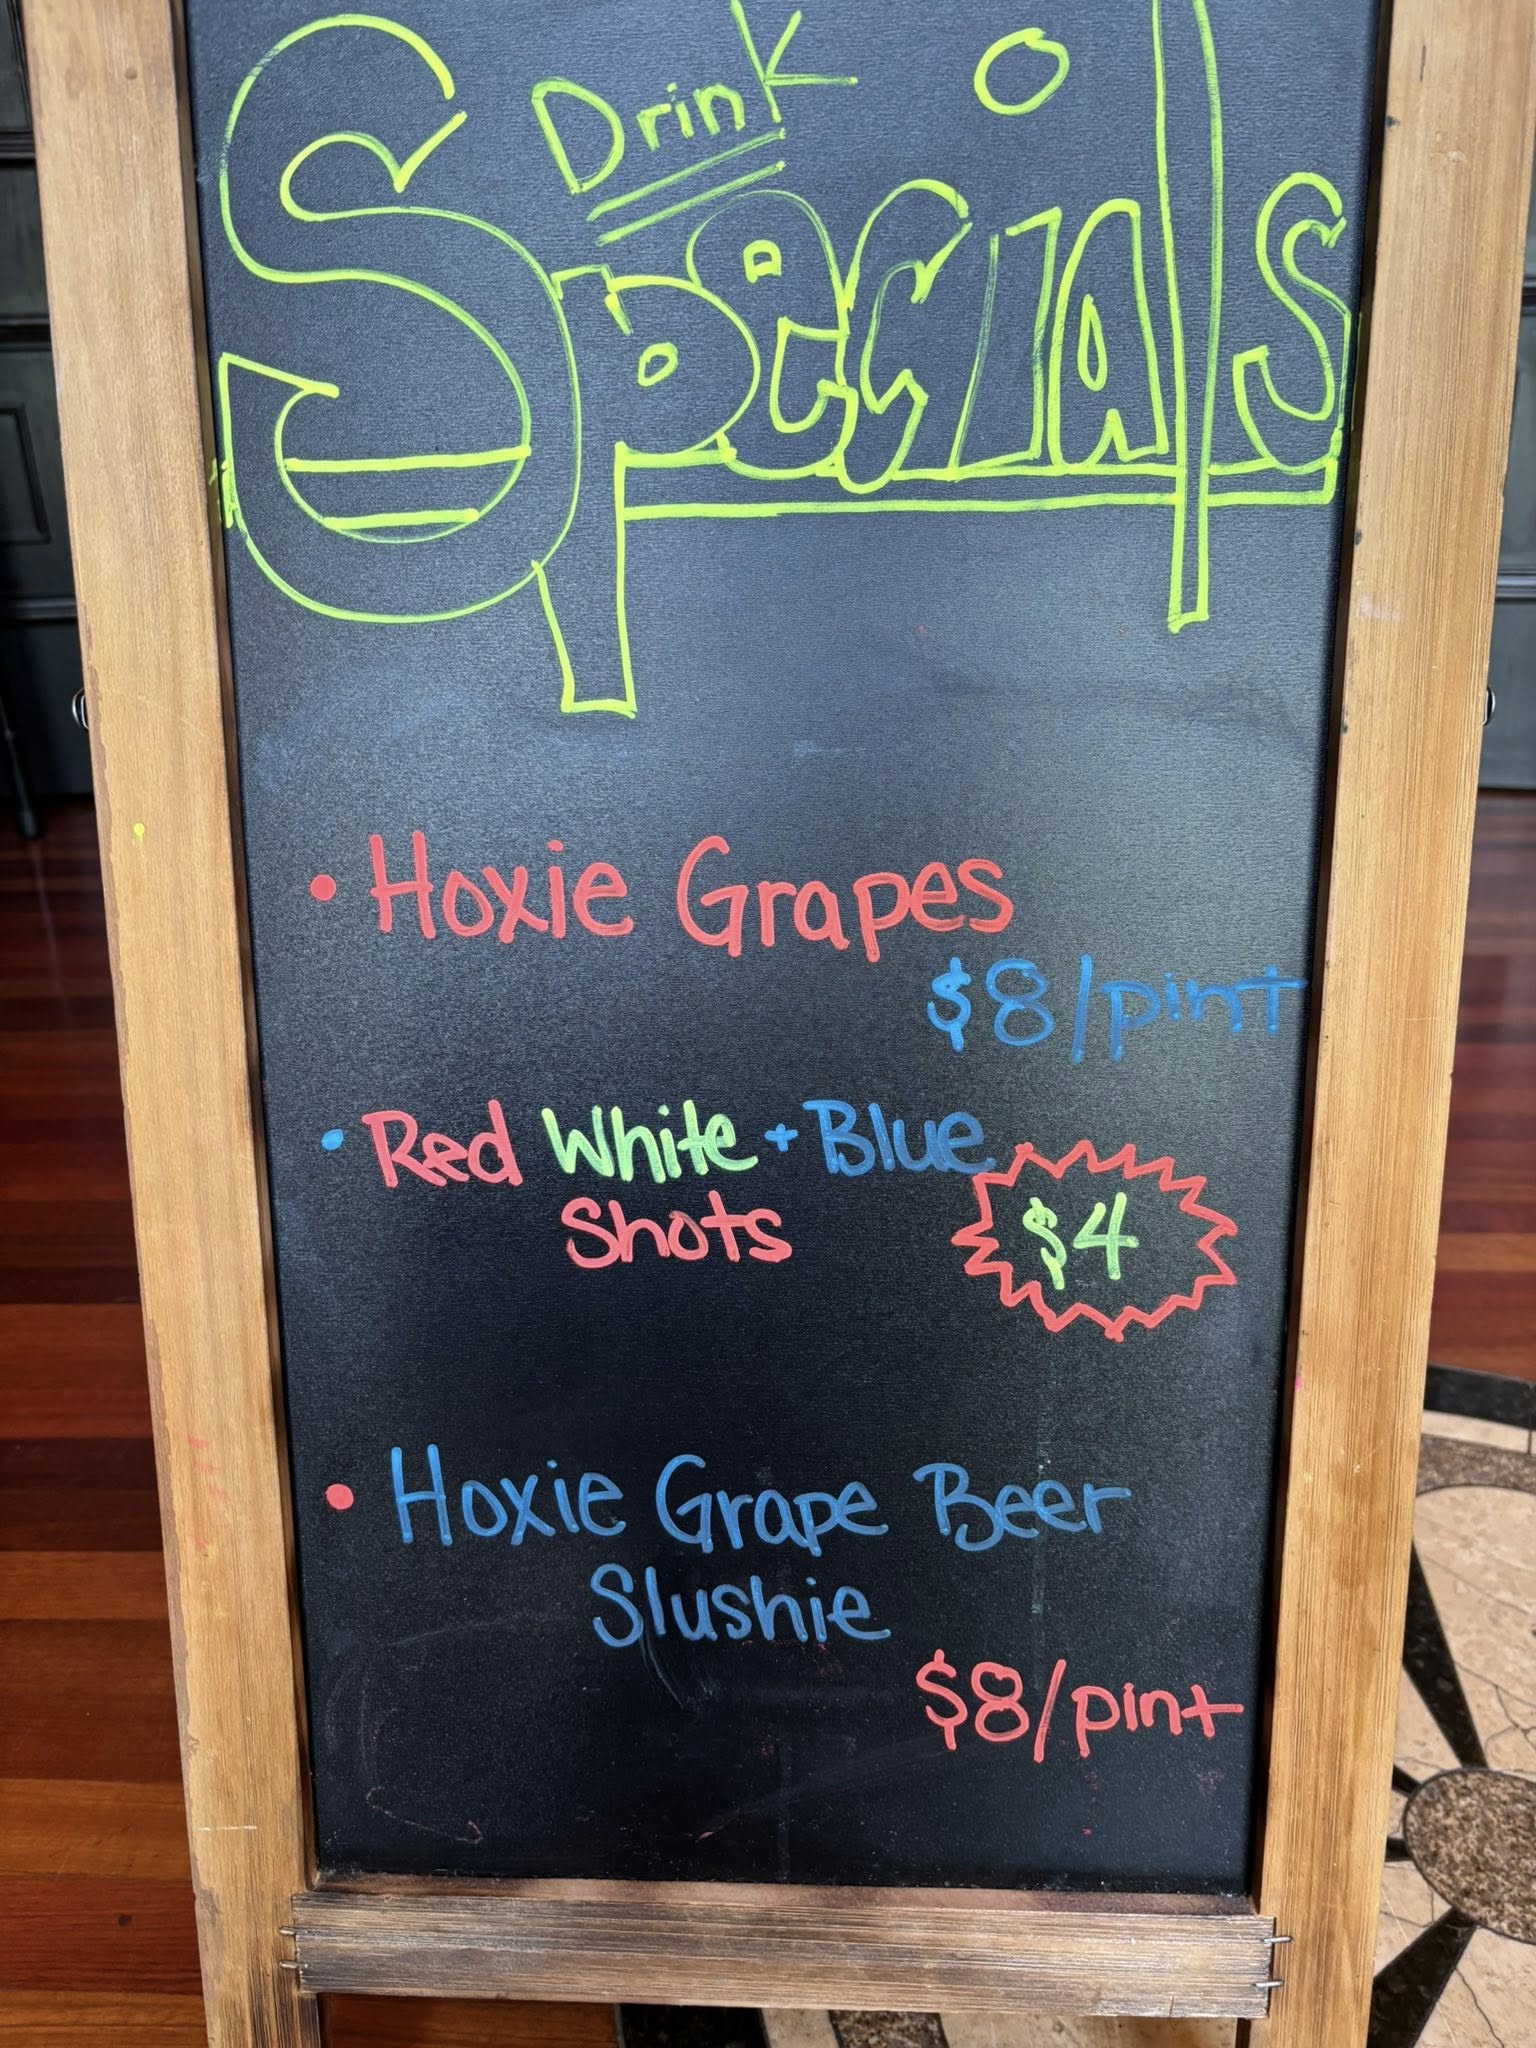 Drink
Specials
• Hoxie Grapes
$8/pint
• Red White + Blue
Shots
$4
• Hoxie Grape Beer
Slushie
$8/pint